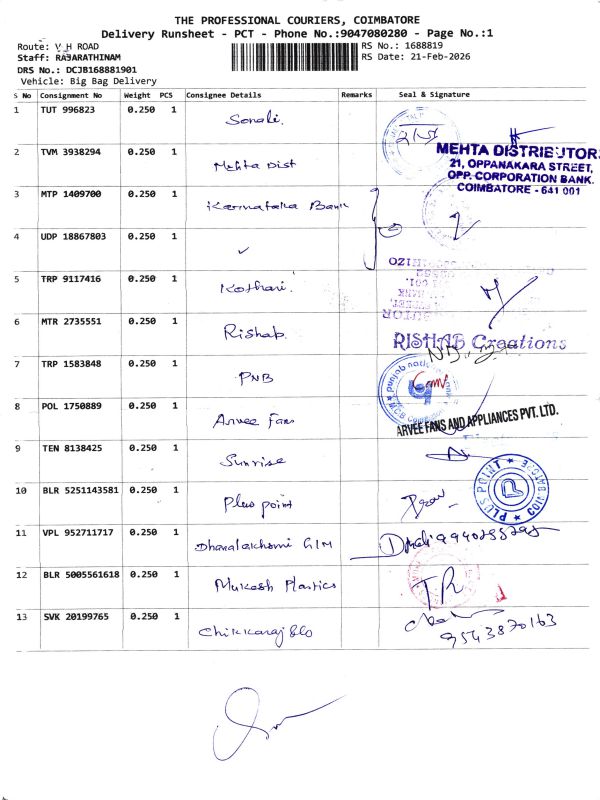 THE PROFESSIONAL COURIERS, COIMBATORE
Delivery Runsheet - PCT - Phone No.:9047080280 - Page No.:1
Route: V H ROAD
RS No.: 1688819
Staff: RAJARATHINAM
RS Date: 21-Feb-2026
DRS No.: DCJB168881901
Vehicle: Big Bag Delivery
S No Consignment No Weight PCS Consignee Details Remarks Seal & Signature
1 TUT 996823 0.250 1 Sonali.
2 TVM 3938294 0.250 1 Mehta Dist
MEHTA DISTRIBUTOR
21, OPPANAKARA STREET,
OPP. CORPORATION BANK.
COIMBATORE - 641 001
3 MTP 1409700 0.250 1 Karnataka Bank
4 UDP 18867803 0.250 1 ✓
5 TRP 9117416 0.250 1 Kothari.
6 MTR 2735551 0.250 1 Rishab.
RISHAB Creations
7 TRP 1583848 0.250 1 PNB
punjab national bank
8 POL 1750889 0.250 1 Arvee Fans
ARVEE FANS AND APPLIANCES PVT. LTD.
9 TEN 8138425 0.250 1 Sunrise
10 BLR 5251143581 0.250 1 Plus point
PLUS POINT ★ COIMBATORE ★
11 VPL 952711717 0.250 1 Dhanalakshmi GIM
12 BLR 5005561618 0.250 1 Mukesh Plastics
TR
13 SVK 20199765 0.250 1 Chikkaraj &co
9543870163